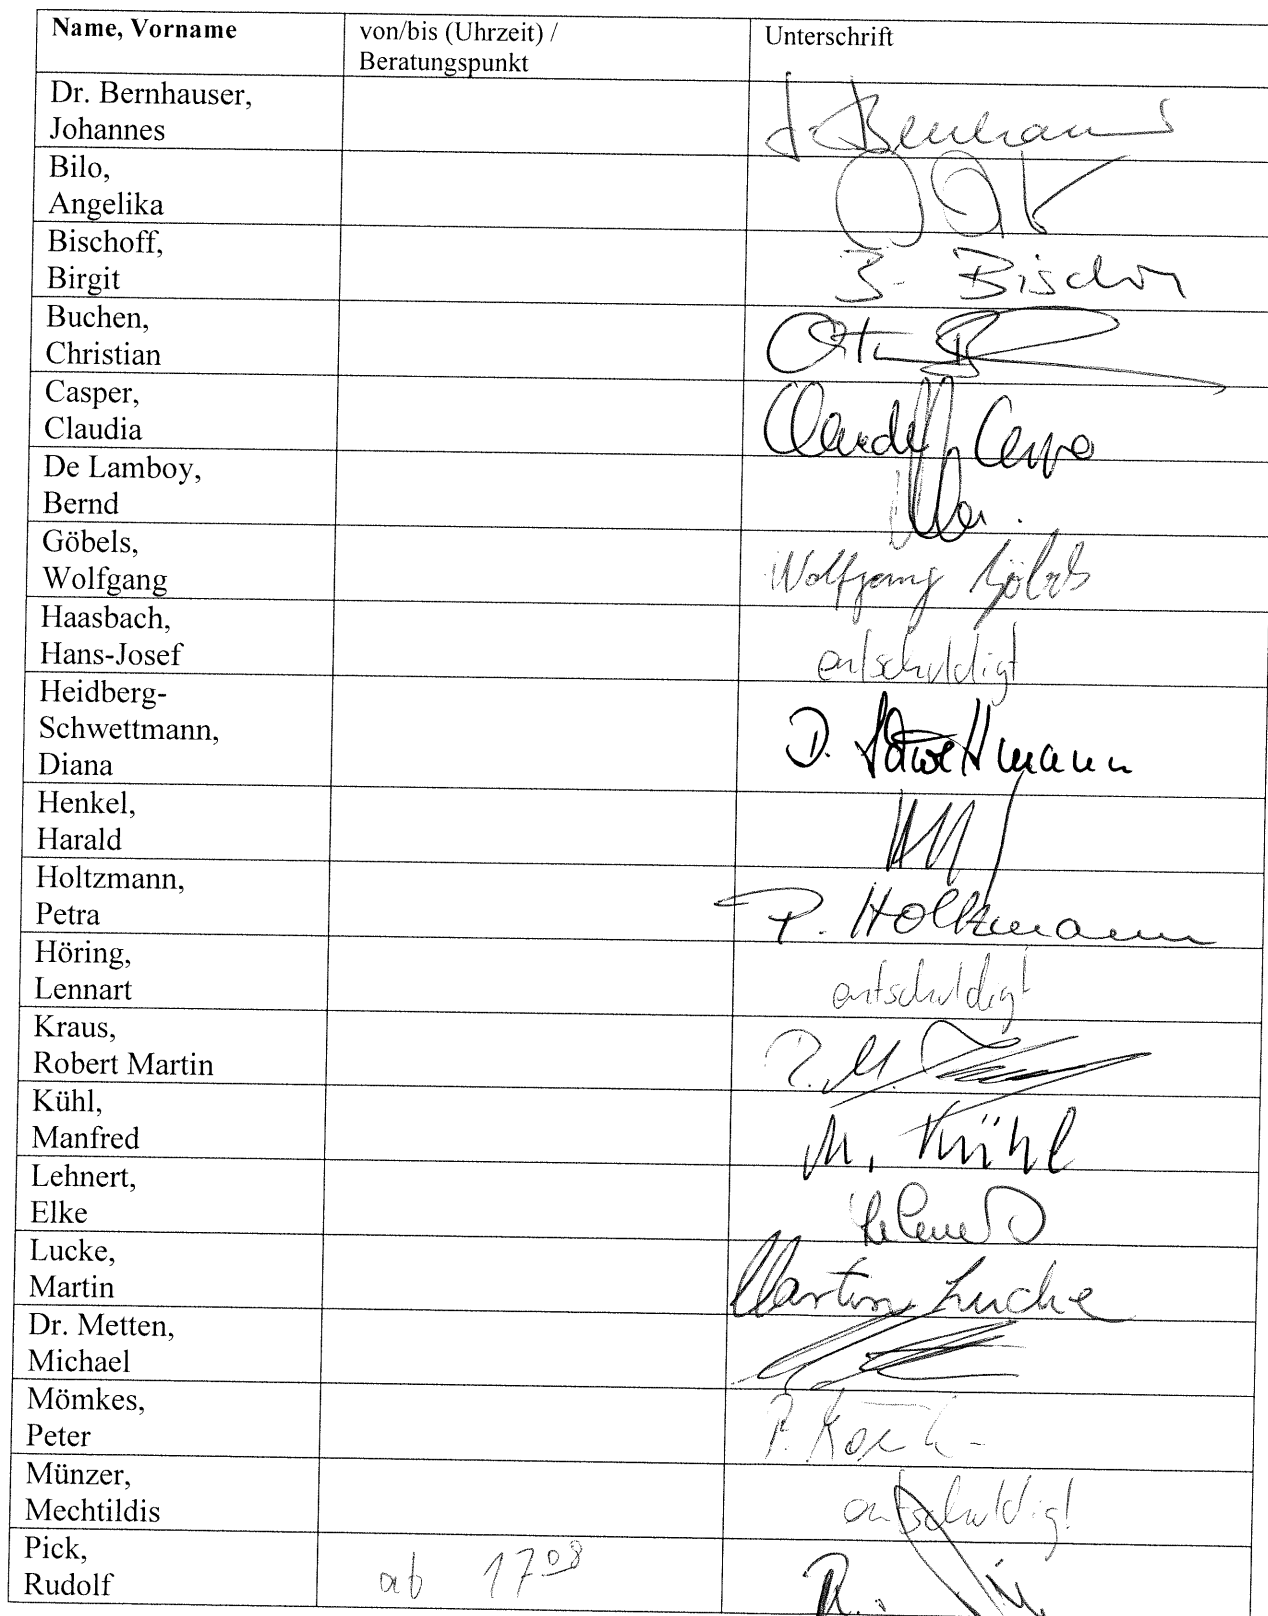 Name, Vorname
von/bis (Uhrzeit) /
Beratungspunkt
Unterschrift
Dr. Bernhauser,
Johannes
Bilo,
Angelika
Bischoff,
Birgit
B. Bischoff
Buchen,
Christian
Casper,
Claudia
Claudia Casper
De Lamboy,
Bernd
Göbels,
Wolfgang
Wolfgang Göbels
Haasbach,
Hans-Josef
entschuldigt
Heidberg-
Schwettmann,
Diana
D. Schwettmann
Henkel,
Harald
Holtzmann,
Petra
P. Holtzmann
Höring,
Lennart
entschuldigt
Kraus,
Robert Martin
R. M.
Kühl,
Manfred
M. Kühl
Lehnert,
Elke
Lehnert
Lucke,
Martin
Martin Lucke
Dr. Metten,
Michael
Mömkes,
Peter
P.
Münzer,
Mechtildis
entschuldigt
Pick,
Rudolf
ab 17 08
R.